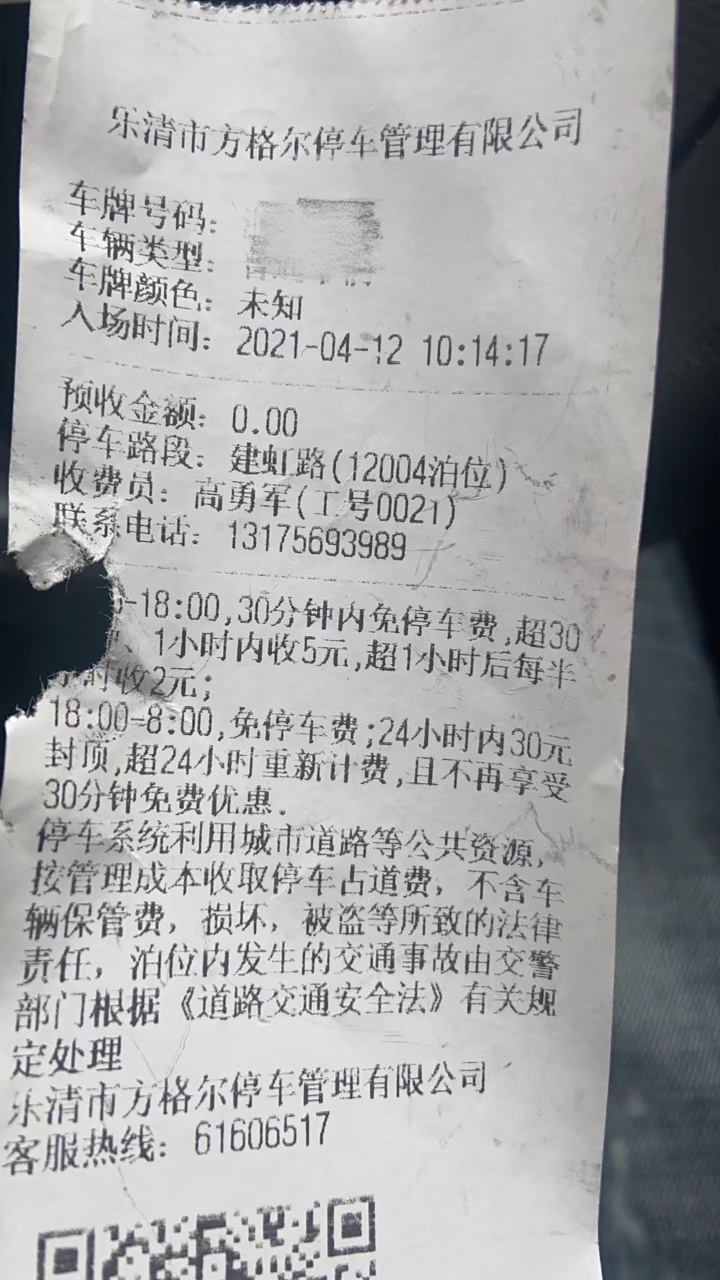 乐清市方格尔停车管理有限公司
车牌号码:
车辆类型:
车牌颜色: 未知
入场时间: 2021-04-12 10:14:17
预收金额: 0.00
停车路段: 建虹路(12004泊位)
收费员: 高勇军(工号0021)
联系电话: 13175693989
-18:00,30分钟内免停车费,超30
、1小时内收5元,超1小时后每半
时收2元;
18:00-8:00,免停车费;24小时内30元
封顶,超24小时重新计费,且不再享受
30分钟免费优惠.
停车系统利用城市道路等公共资源,
按管理成本收取停车占道费, 不含车
辆保管费, 损坏, 被盗等所致的法律
责任, 泊位内发生的交通事故由交警
部门根据《道路交通安全法》有关规
定处理
乐清市方格尔停车管理有限公司
客服热线: 61606517